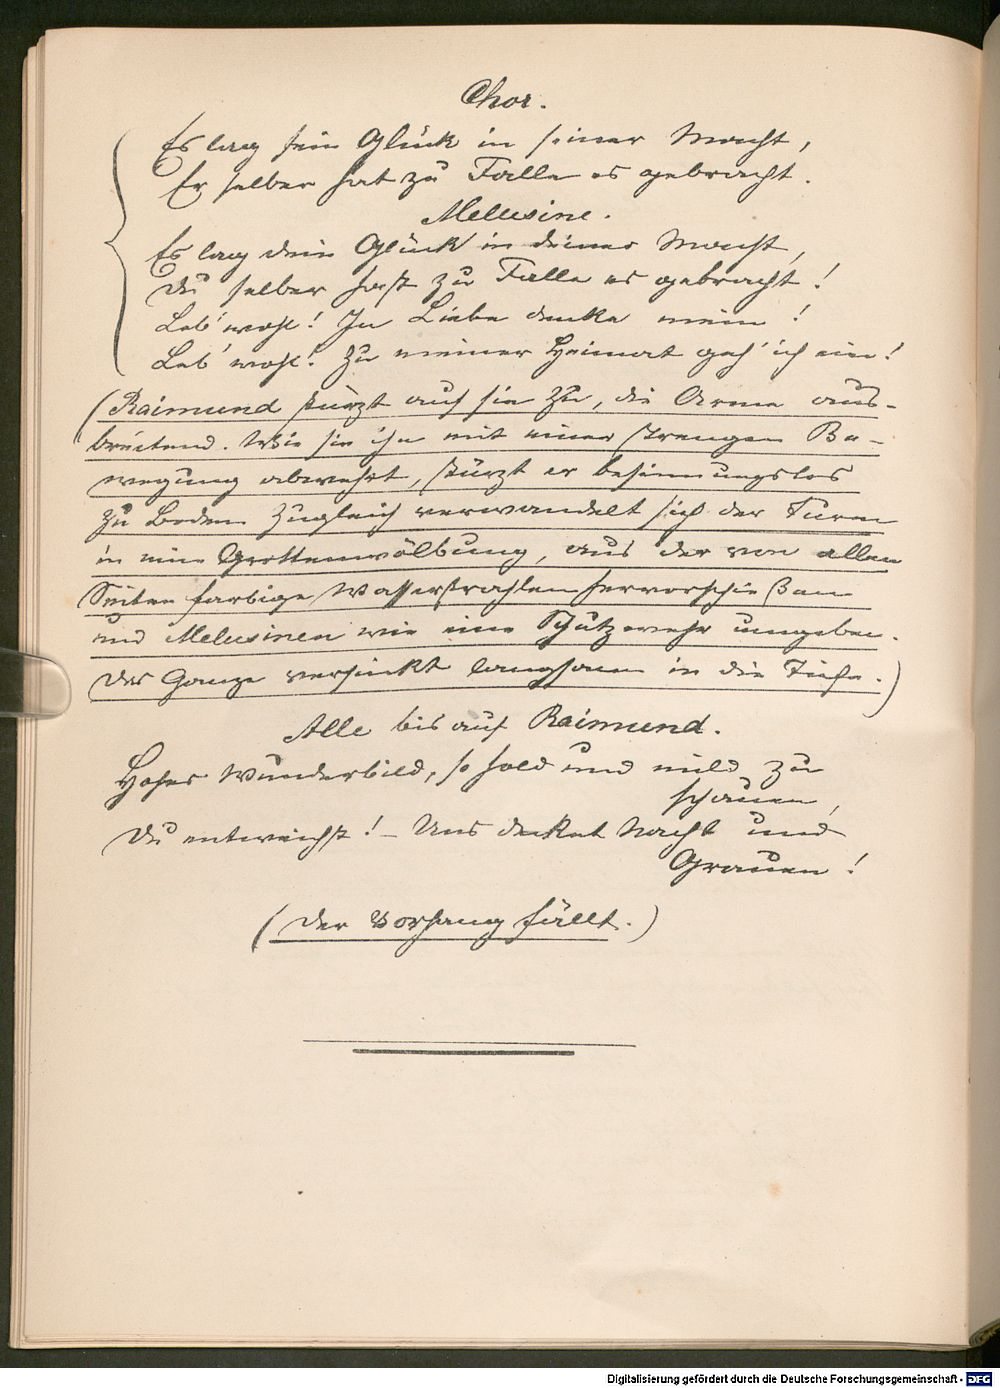 Chor.
Es lag sein Glück in seiner Macht,
Er selber hat zu Falle es gebracht.
Melusine.
Es lag dein Glück in deiner Macht,
Du selber hast zu Falle es gebracht!
Leb' wohl! In Liebe denke mein!
Leb' wohl! Zu meiner Heimat geh' ich ein!
(Raimund stürzt auf sie zu, die Arme aus-
breitend. Wie sie ihn mit einer strengen Be-
wegung abwehrt, stürzt er besinnungslos
zu Boden. Zugleich verwandelt sich der Turm
in eine Grottenwölbung, aus der von allen
Seiten farbige Wasserstrahlen hervorschießen
und Melusinen wie eine Schutzwehr umgeben.
Das Ganze versinkt langsam in die Tiefe.)
Alle bis auf Raimund.
Hohes Wunderbild, so hold und mild zu
schauen,
Du entweichst! – Uns decket Nacht und
Grauen!
(Der Vorhang fällt.)
Digitalisierung gefördert durch die Deutsche Forschungsgemeinschaft - DFG